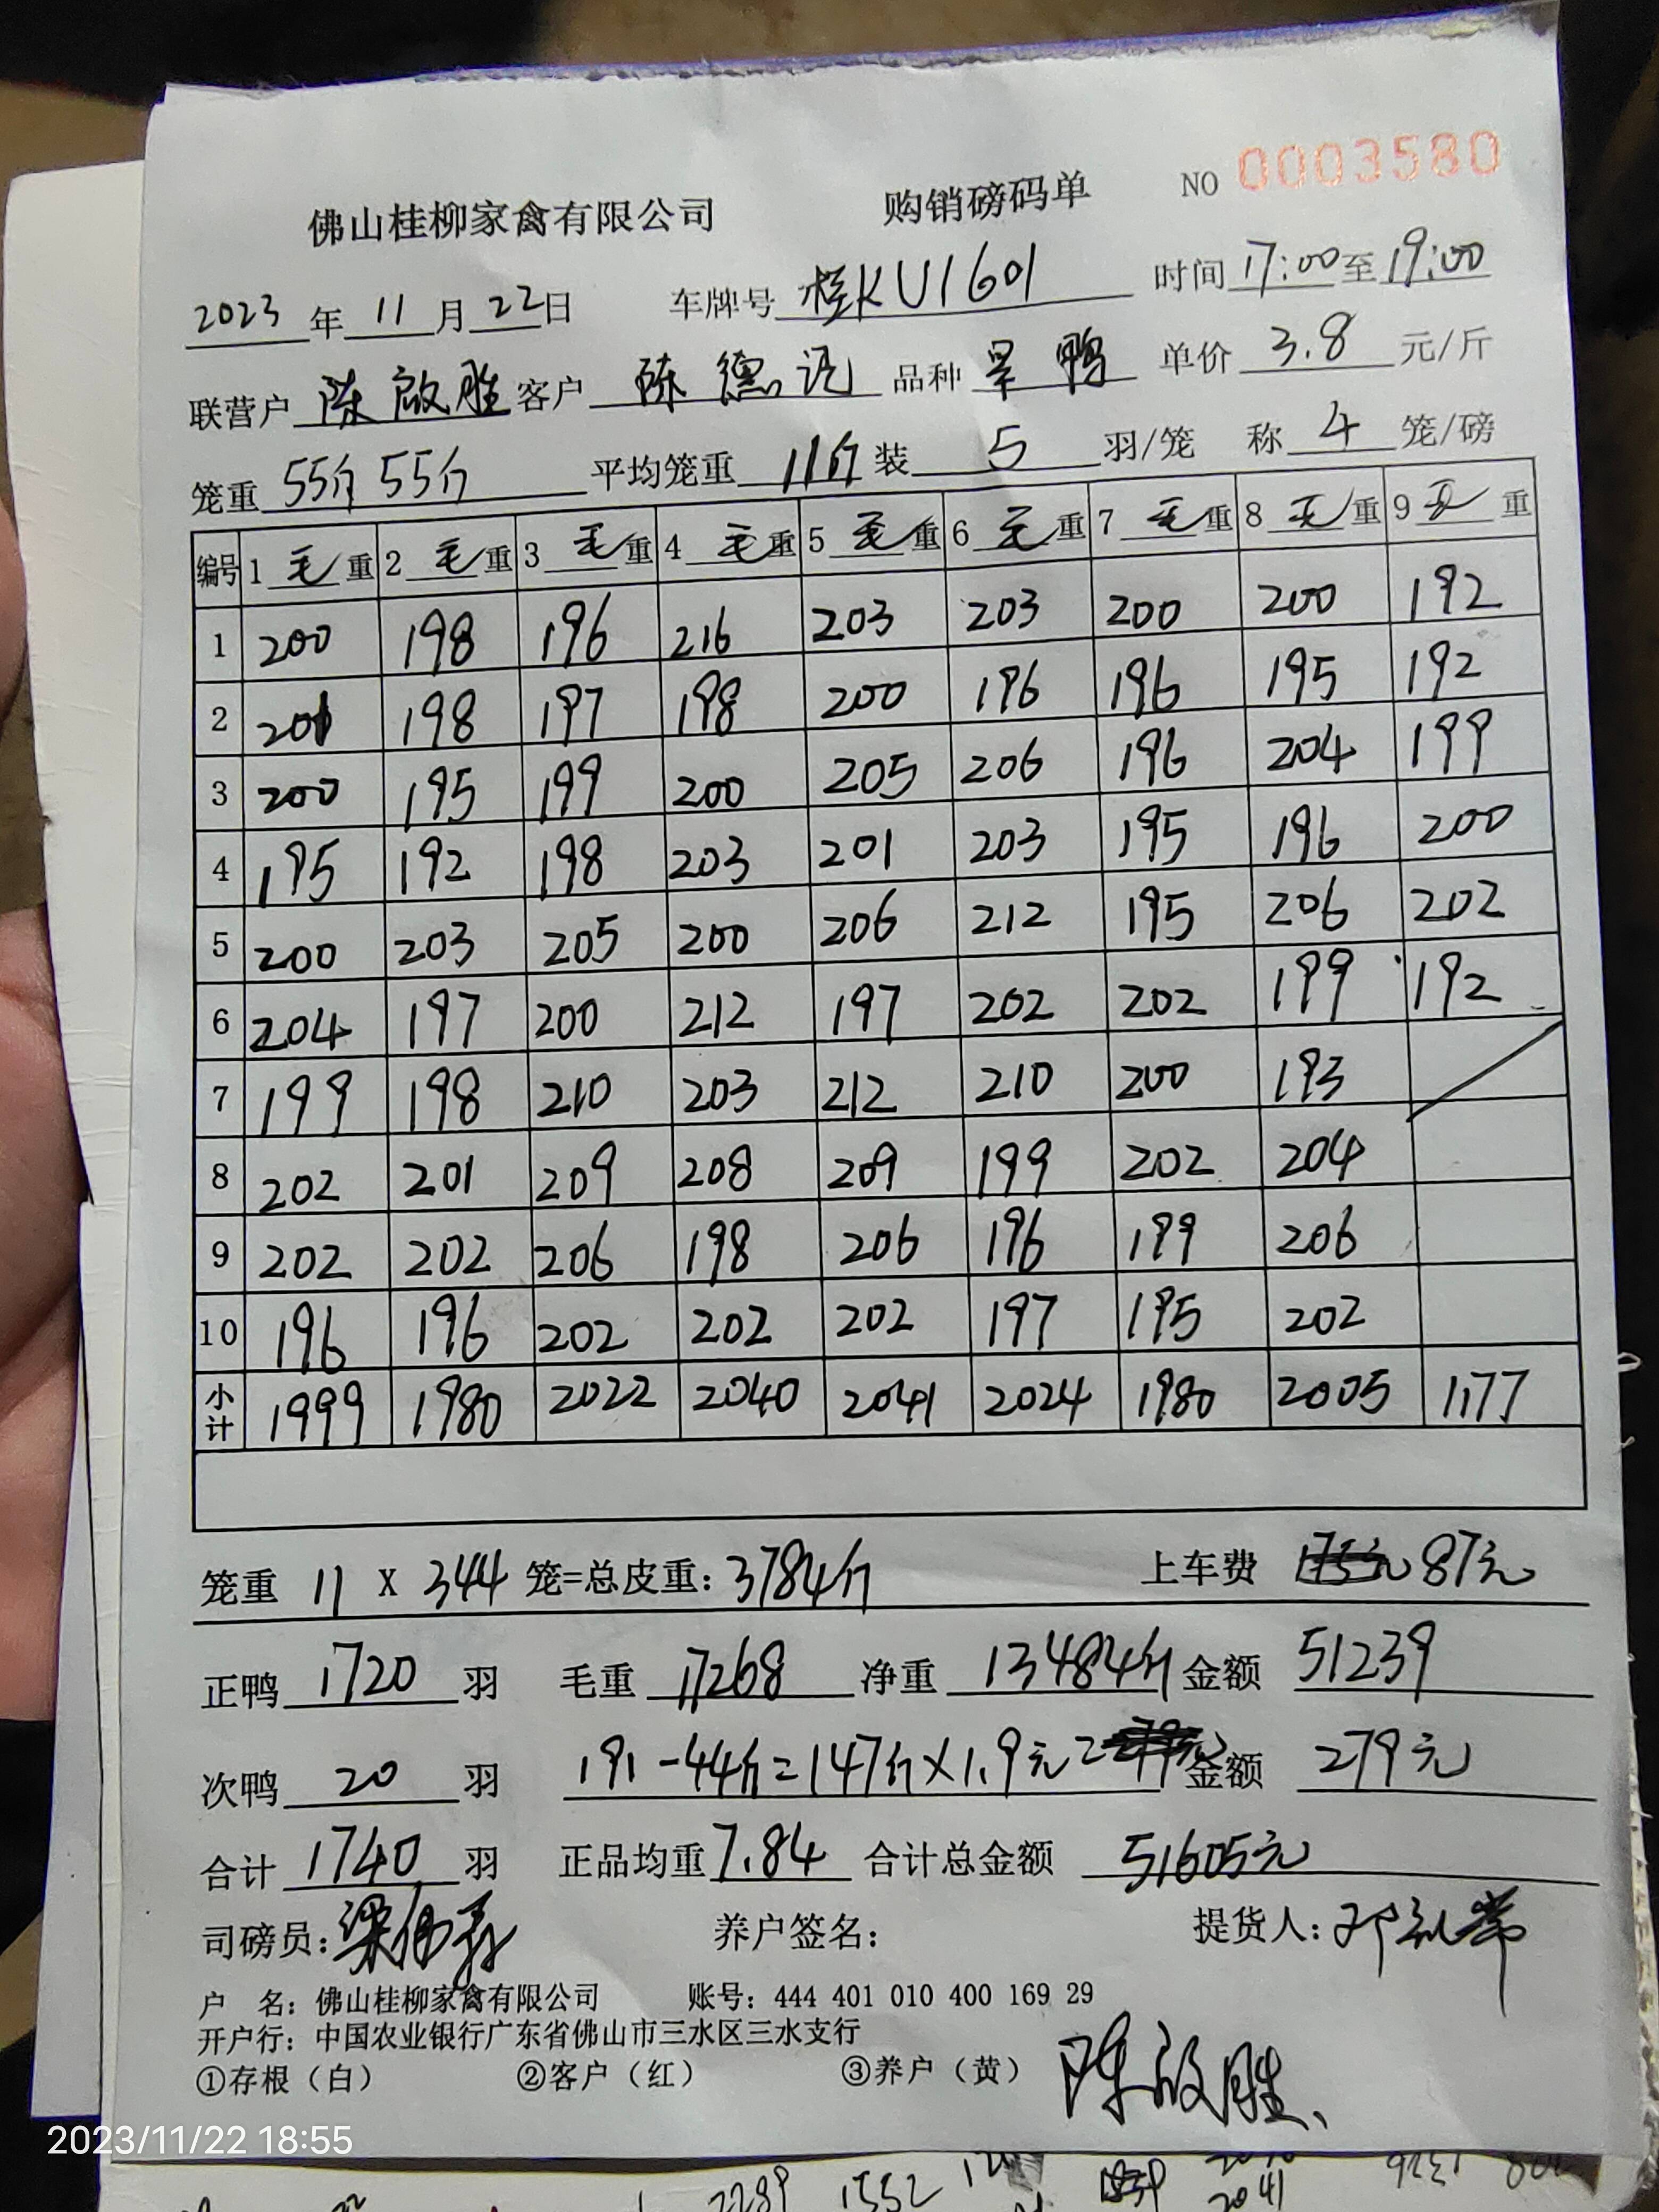 NO 0003580
佛山桂柳家禽有限公司 购销磅码单
2023年11月22日 车牌号 桂KU1601 时间 17:00至19:00
联营户 陈啟胜 客户 陈德记 品种 旱鸭 单价 3.8 元/斤
笼重 55斤 55斤 平均笼重 11斤 装 5 羽/笼 称 4 笼/磅
编号 1 毛重 2 毛重 3 毛重 4 毛重 5 毛重 6 毛重 7 毛重 8 毛重 9 毛重
1 200 198 196 216 203 203 200 200 192
2 201 198 197 198 200 196 196 195 192
3 200 195 199 200 205 206 196 204 199
4 195 192 198 203 201 203 195 196 200
5 200 203 205 200 206 212 195 206 202
6 204 197 200 212 197 202 202 199 192
7 199 198 210 203 212 210 200 193
8 202 201 209 208 209 199 202 204
9 202 202 206 198 206 196 199 206
10 196 196 202 202 202 197 195 202
小计 1999 1980 2022 2040 2041 2024 1980 2005 1177
笼重 11 X 344 笼=总皮重: 3784斤 上车费 87元
正鸭 1720 羽 毛重 17268 净重 13484斤 金额 51239
次鸭 20 羽 191-44斤=147斤×1.9元= 金额 279元
合计 1740 羽 正品均重 7.84 合计总金额 51605元
司磅员: 梁 养户签名: 提货人: 邓
户 名: 佛山桂柳家禽有限公司 账号: 444 401 010 400 169 29
开户行: 中国农业银行广东省佛山市三水区三水支行
①存根（白） ②客户（红） ③养户（黄） 陈啟胜
2023/11/22 18:55
2289 1552
2041